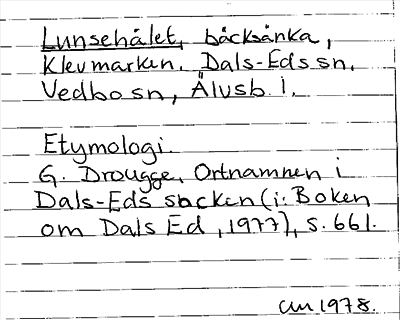 Lunsehålet, bäcksänka,
Klevmarken, Dals-Eds sn,
Vedbo sn, Älvsb. l.
Etymologi.
G. Drougge, Ortnamnen i
Dals-Eds socken (i: Boken
om Dals Ed, 1977), s. 661.
1978.